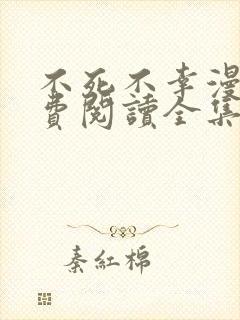 不死不幸漫
費閱讀全集
秦紅棉